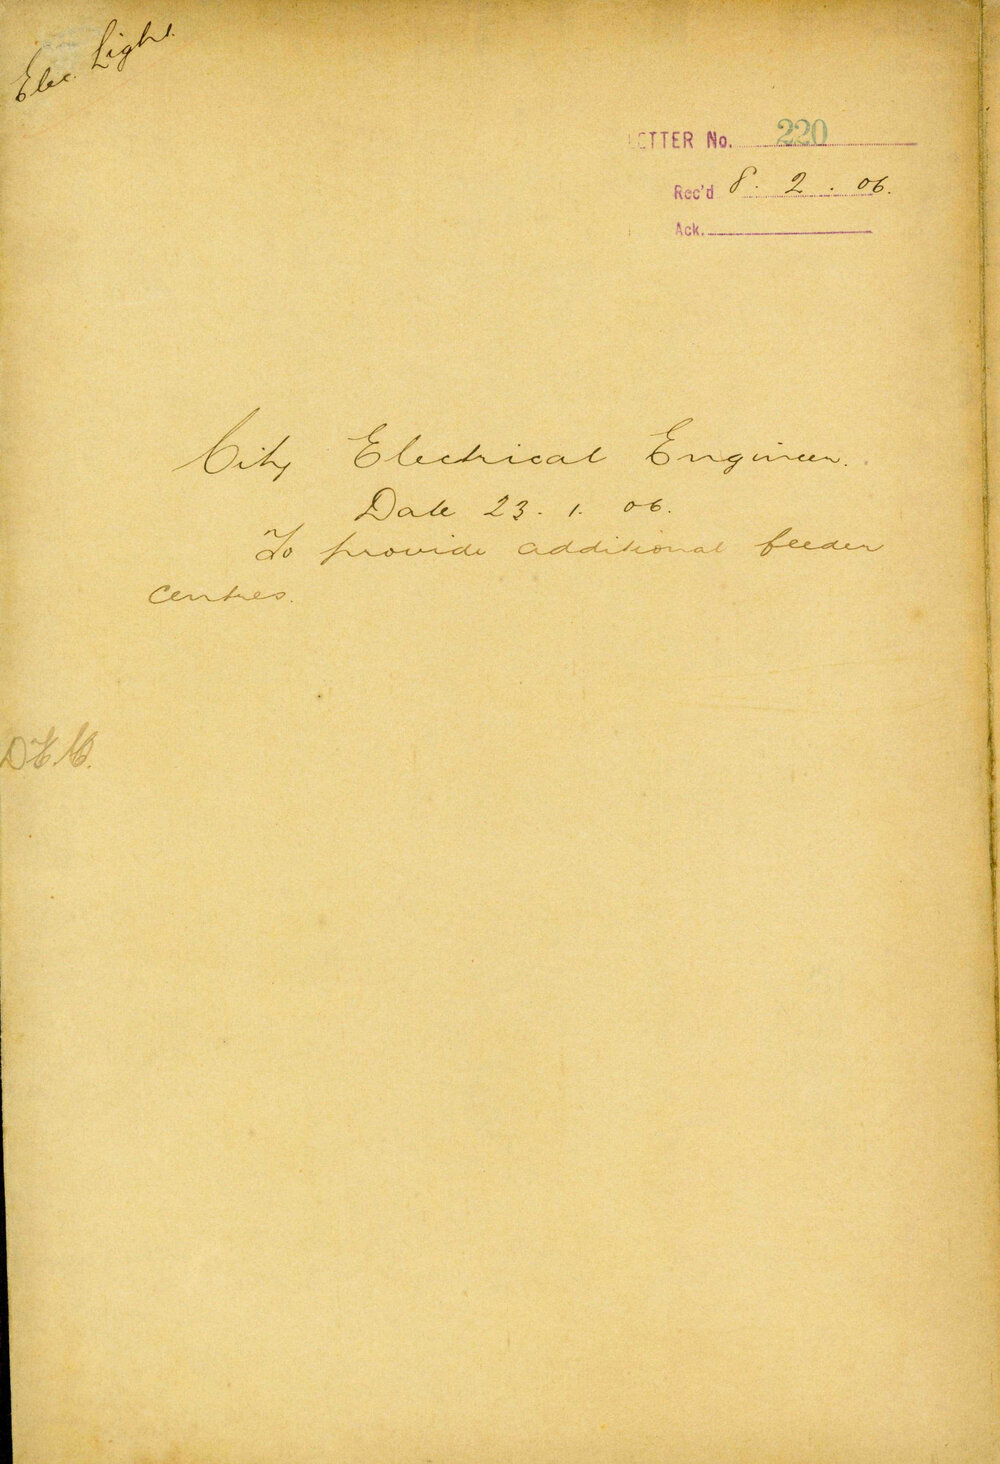 Elec. Light.
LETTER No. 220
Rec'd 8. 2. 06.
Ack.
City Electrical Engineer.
Date 23. 1. 06.
To provide additional feeder
centres.